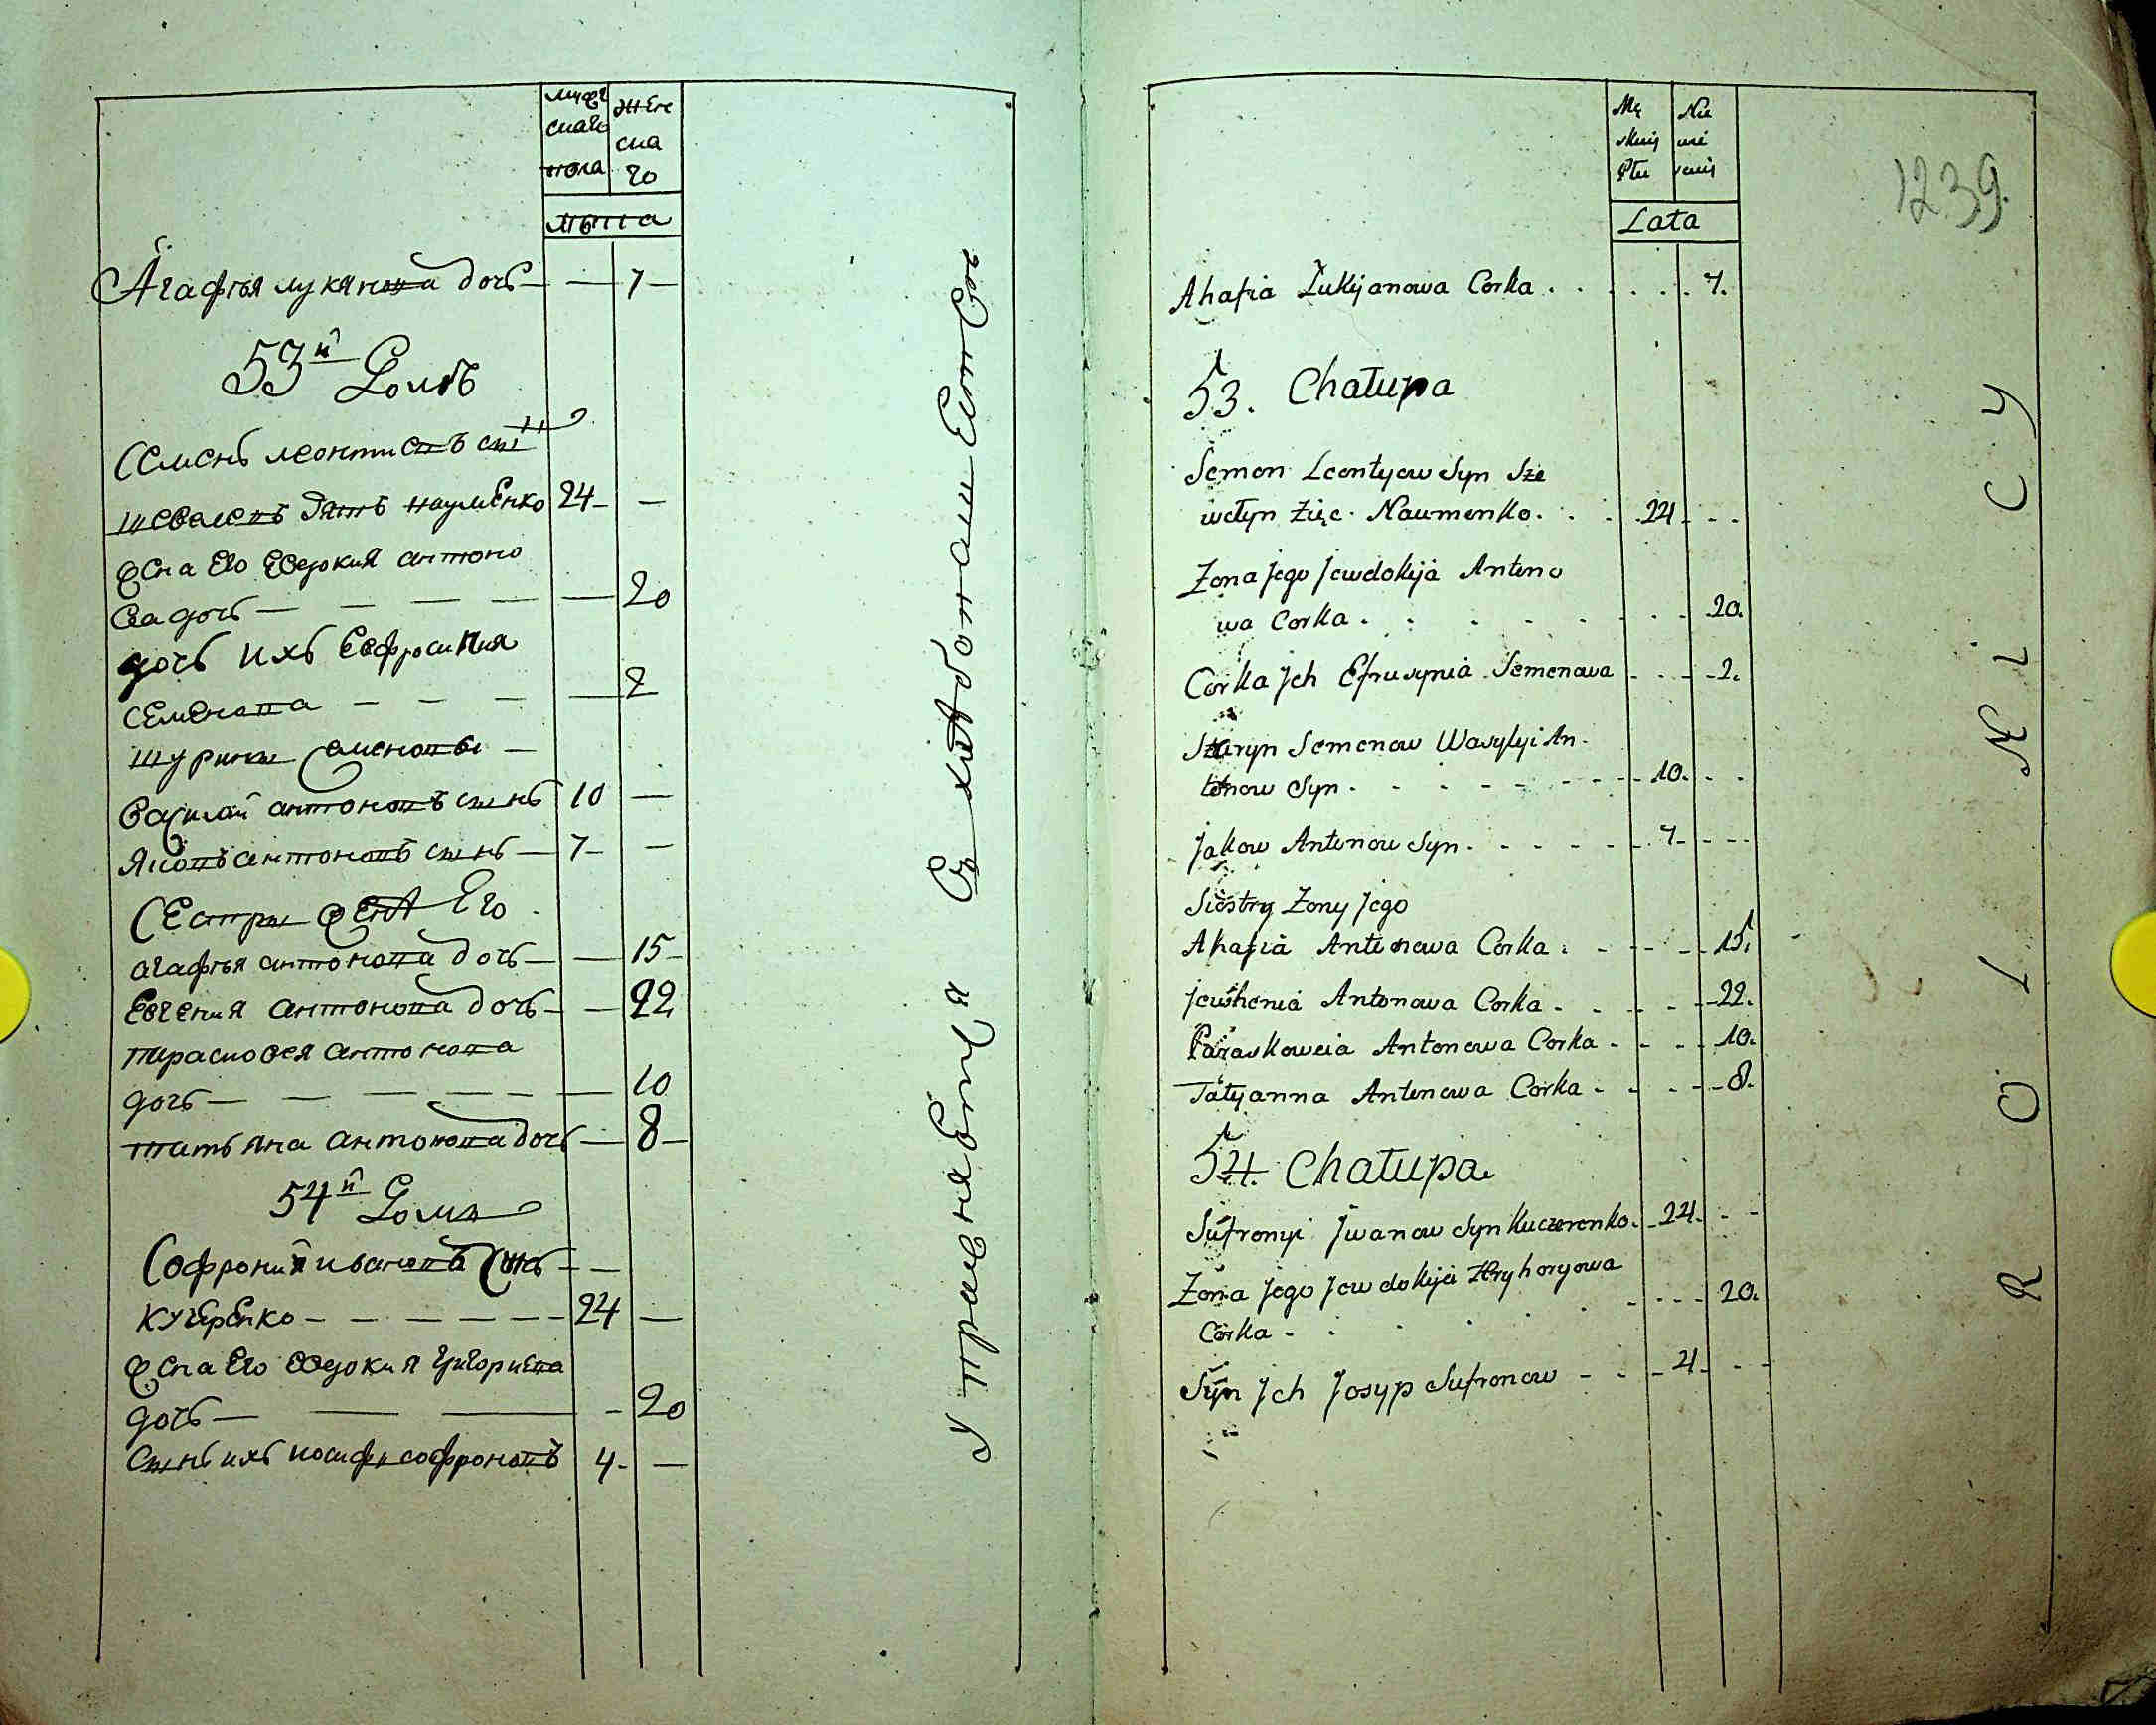 мужескаго пола
женскаго
лѣта
Агафія лукянова дочь — — 7 —
53й Домъ
Семенъ леонтиевъ сынъ
шевелевъ зять науменко 24 — —
жена Его Евдокия антоно
ва дочь — — — — — 20
дочь ихъ Евфросиния
семенова — — — — 2
шурины семеновы —
василий антоновъ сынъ 10 —
яковъ антоновъ сынъ — 7 — —
Сестры жены Его
агафія антонова дочь — — 15 —
Евгения антонова дочь — — 22
парасковея антонова
дочь — — — — — — 10
татьяна антонова дочь — 8 —
54й Домъ
Софроний ивановъ сынъ — —
кучеренко — — — — — — 24 —
жена Его Евдокия григориева
дочь — — — — 20
сынъ ихъ иосифъ софроновъ 4 - —
У трає
Mę
skiej
Płci
Nie
wie
sciej
Lata
1239.
Ahafia Łukijanowa Corka . . . . . . 7.
53. Chałupa
Semon Leontyow Syn Sze
wełyn Zięc Naumenko. . . . 24 - - -
Zona Jego Jewdokija Antono
wa Corka . . . . . . . . 20.
Corka Jch Efrusynia Semenowa - - - - 2.
Szuryn Semenow Wasylyi An-
tonow Syn - - - - - - - 10. - -
Jakow Antonow Syn - - - - - 7 - - - -
Siostry Zony Jego
Ahafia Antonowa Corka . - - - - 15.
Jewhenia Antonowa Corka - - - - - 22.
Paraskoweia Antonowa Corka - - - - 10.
Tatyanna Antonowa Corka - - - - - 8.
54. Chałupa
Sufronyi Jwanow Syn Kuczerenko. - 24. - -
Zona Jego Jewdokija Hryhoryowa
Corka - . . . . - - - - 20.
Syn Jch Josyp Sufronow - - - 4 - - -
R O L N i C Y